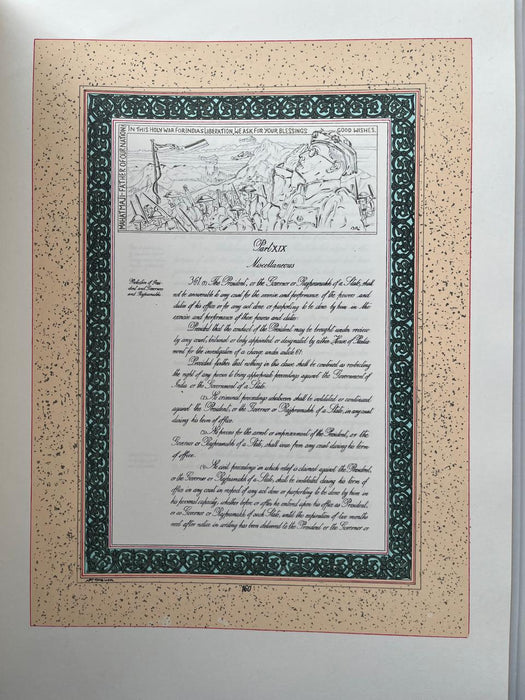 MAHATMAJI-FATHER OF OUR NATION,
IN THIS HOLY WAR FOR INDIAS LIBERATION, WE ASK FOR YOUR BLESSINGS GOOD WISHES.
Part XIX
Miscellaneous
Protection of Pres-
ident and Governors
and Rajpramukhs
361. (1) The President, or the Governor or Rajpramukh of a State, shall
not be answerable to any court for the exercise and performance of the powers and
duties of his office or for any act done or purporting to be done by him in the
exercise and performance of those powers and duties:
Provided that the conduct of the President may be brought under review
by any court, tribunal or body appointed or designated by either House of Parlia-
ment for the investigation of a charge under article 61:
Provided further that nothing in this clause shall be construed as restricting
the right of any person to bring appropriate proceedings against the Government of
India or the Government of a State.
(2) No criminal proceedings whatsoever shall be instituted or continued
against the President, or the Governor or Rajpramukh of a State, in any court
during his term of office.
(3) No process for the arrest or imprisonment of the President, or the
Governor or Rajpramukh of a State, shall issue from any court during his term
of office.
(4) No civil proceedings in which relief is claimed against the President,
or the Governor or Rajpramukh of a State, shall be instituted during his term of
office in any court in respect of any act done or purporting to be done by him in
his personal capacity, whether before or after he entered upon his office as President,
or as Governor or Rajpramukh of such State, until the expiration of two months
next after notice in writing has been delivered to the President or the Governor or
160